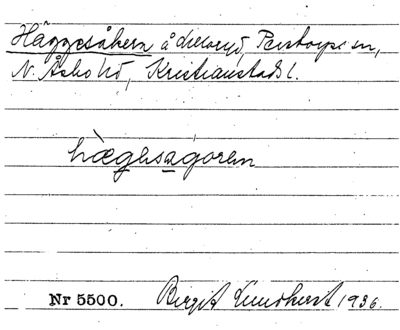 Häggesåkern å Metaryd, Perstorps sn,
N. Åsbo hd, Kristianstads l.
hægesagoren
Nr 5500. Birgit Lundkvist 1936.